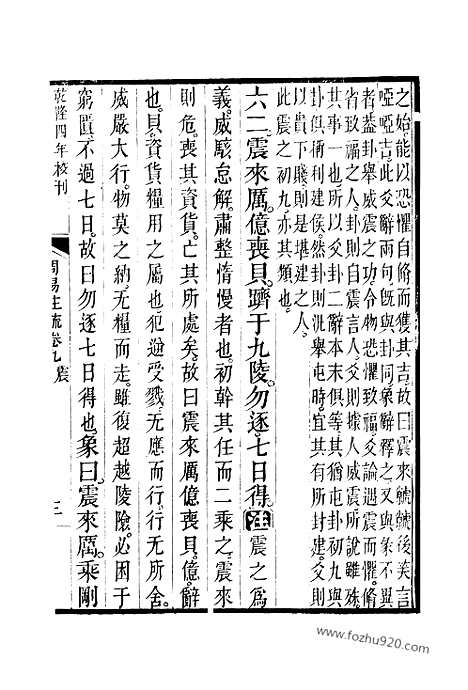 之始能以恐懼自脩而獲其吉故曰震來虩虩後笑言
啞啞吉此爻辭兩句既與卦同象辭釋之又與彖不異
者蓋卦舉威震之功令物恐懼致福爻論遇震而懼脩
省致福之人卦則自震言人爻則據人威震所說雖殊
其事一也所以爻卦二辭本末俱等其猶屯卦初九與
卦俱稱利建侯然卦則汎舉屯時宜其有所封建爻則
以貴下賤則是堪建之人
此震之初九亦其類也
六二。震來厲。億喪貝。躋于九陵。勿逐。七日得。注震之爲
義。威駭怠解。肅整惰慢者也。初幹其任而二乘之。震來
則危。喪其資貨。亡其所處矣。故曰震來厲億喪貝。億。辭
也。貝。資貨糧用之屬也。犯逆受戮。无應而行。行无所舍。
威嚴大行。物莫之納。无糧而走。雖復超越陵險。必困于
窮匱。不過七日。故曰勿逐七日得也。象曰。震來厲。乘剛
乾隆四年校刊
周易注疏卷九 震
三
www.fozhu920.com